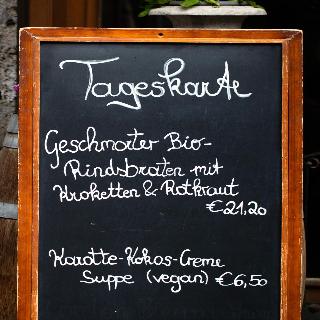 Tageskarte
Geschmorter Bio-
Rindsbraten mit
Kroketten & Rotkraut
€21,20
Karotte-Kokos-Creme
Suppe (vegan) €6,50